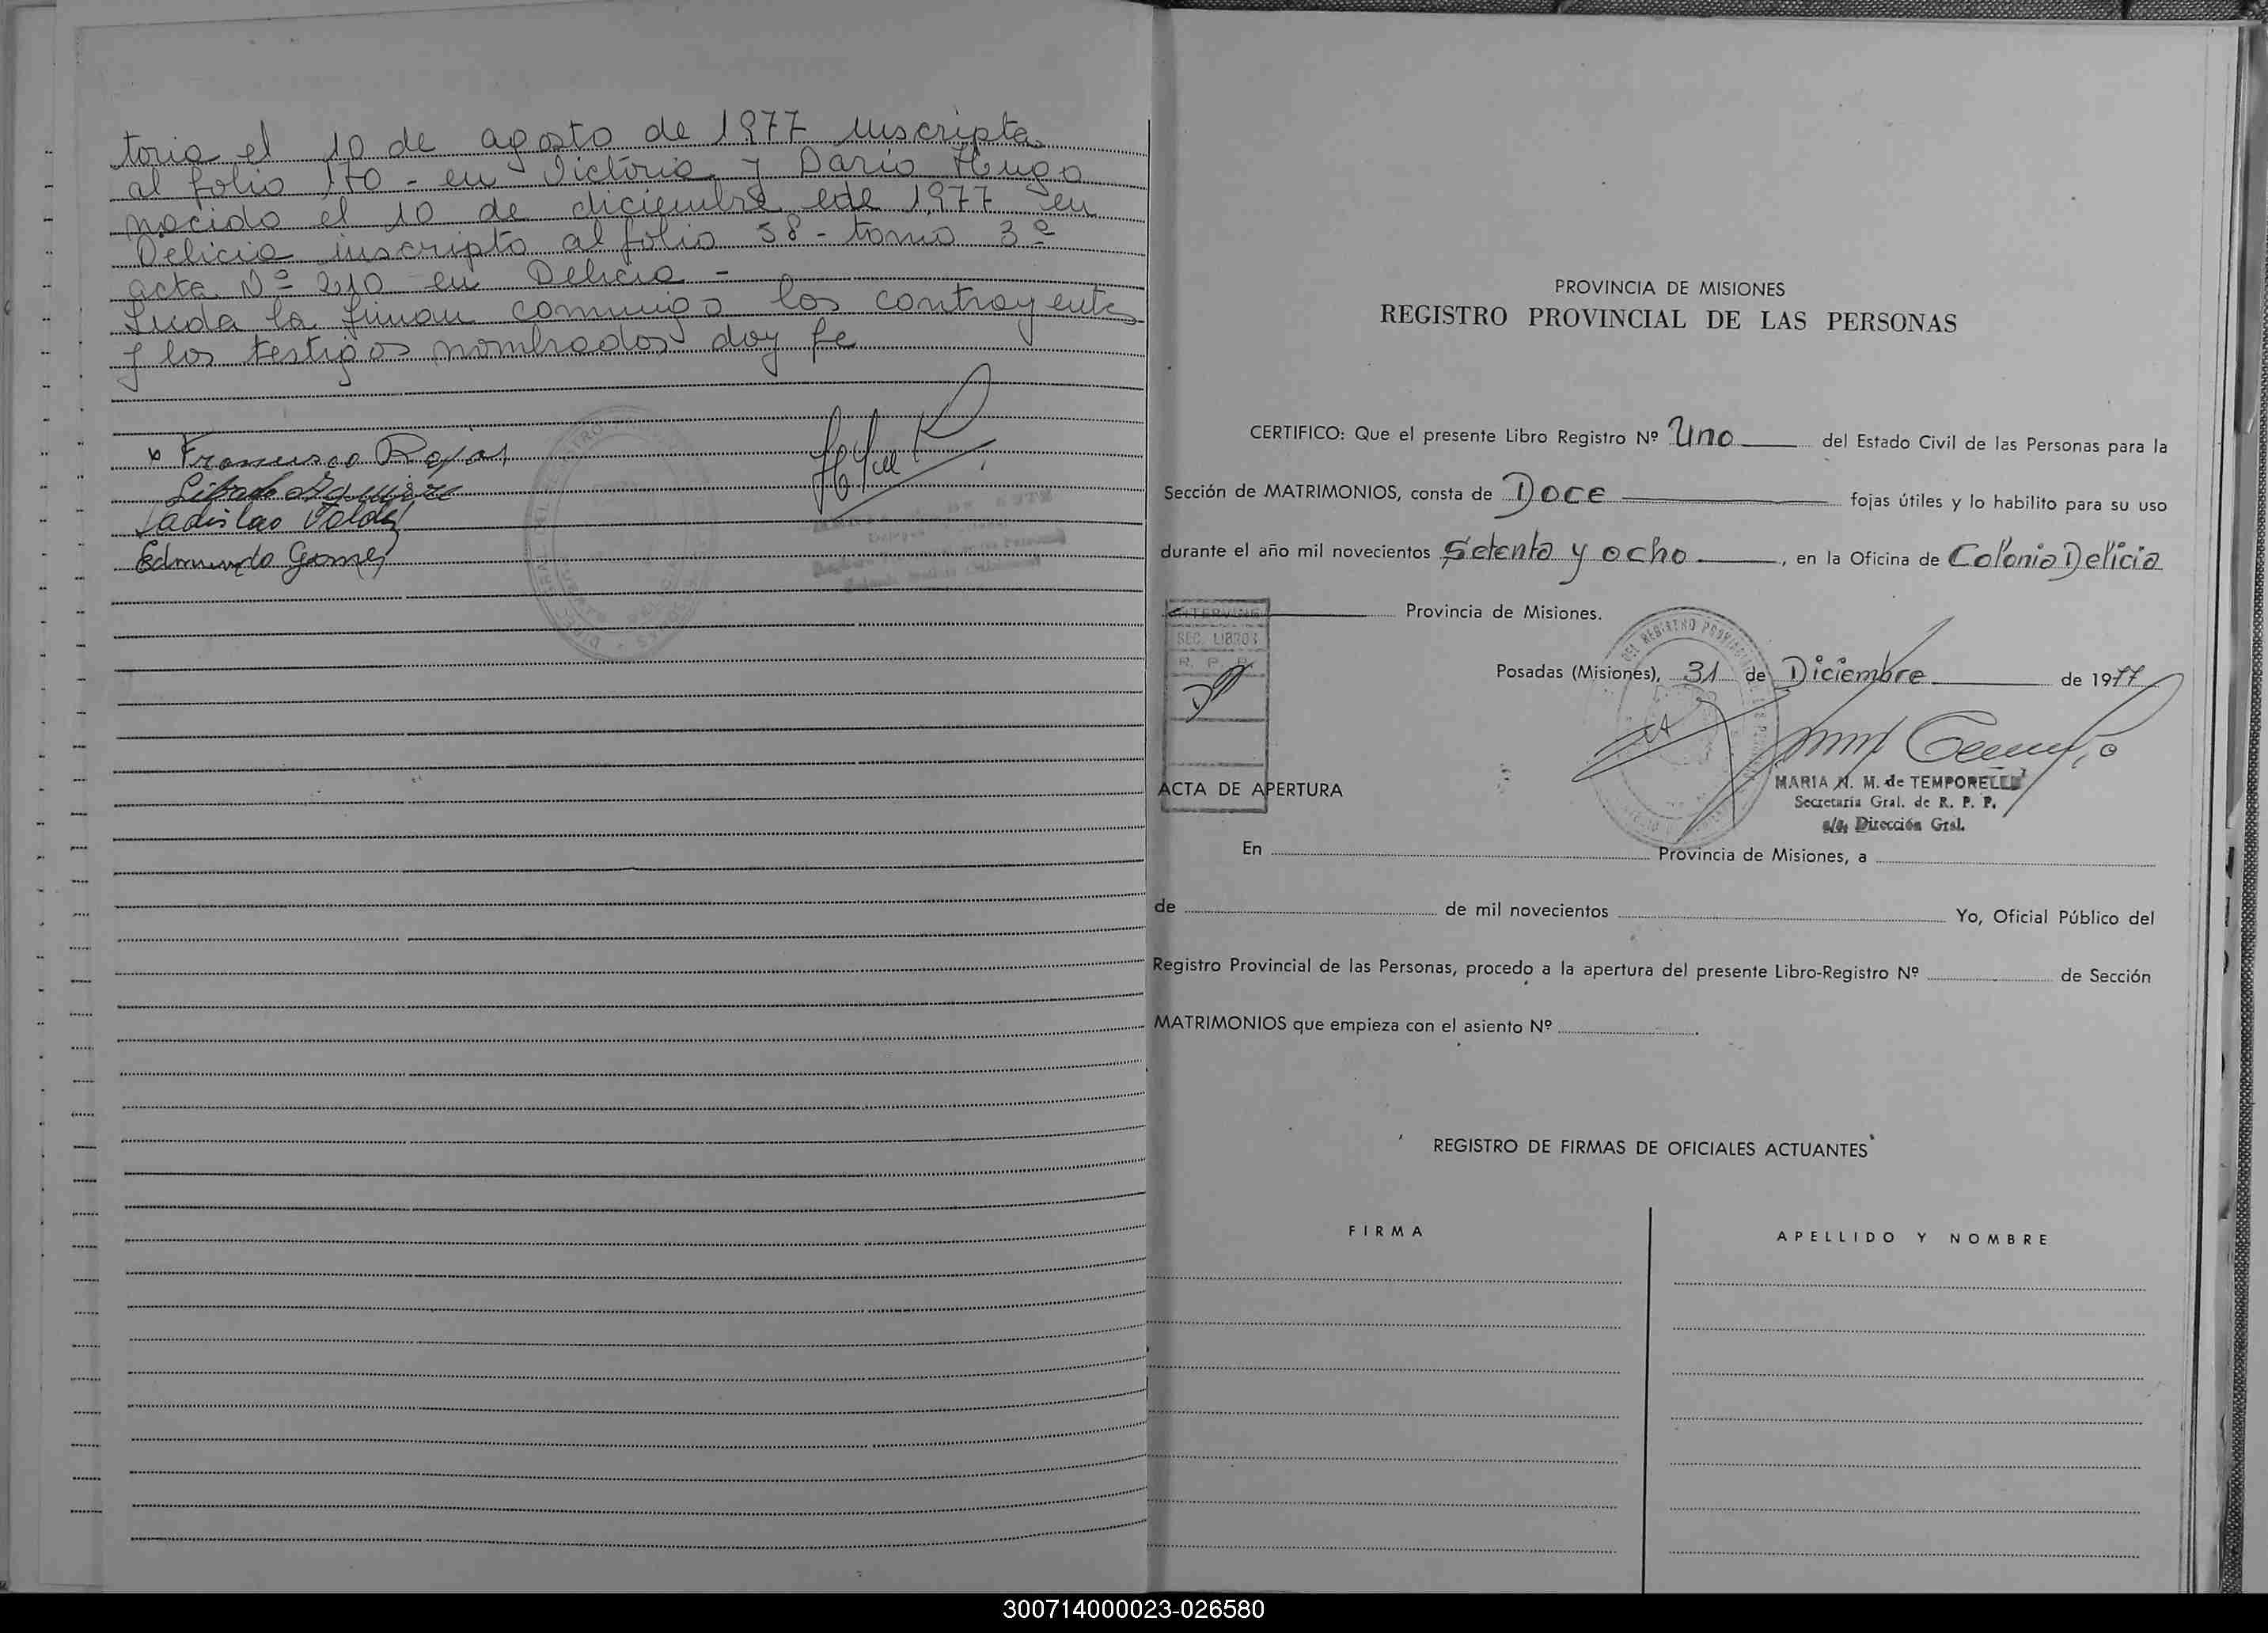 toria el 10 de agosto de 1977 inscripta
al folio 170 - en Victoria y Dario Hugo
nacido el 10 de diciembre ede 1977 en
Delicia inscripto al folio 58 - tomo 3º
acta Nº 210 en Delicia -
Leida la firman conmigo los contrayentes
y los testigos nombrados doy fe
x Francisco Rojas
Ladislao Valdez
Edmundo Gomez
PROVINCIA DE MISIONES
REGISTRO PROVINCIAL DE LAS PERSONAS
CERTIFICO: Que el presente Libro Registro Nº Uno del Estado Civil de las Personas para la
Sección de MATRIMONIOS, consta de Doce fojas útiles y lo habilito para su uso
durante el año mil novecientos Setenta y ocho, en la Oficina de Colonia Delicia
Provincia de Misiones.
INTERVINO
SEC. LIBROS
R. P. P.
Posadas (Misiones), 31 de Diciembre de 1977
MARIA N. M. de TEMPORELLI
Secretaria Gral. de R. P. P.
a/c. Dirección Gral.
ACTA DE APERTURA
En Provincia de Misiones, a
de de mil novecientos Yo, Oficial Público del
Registro Provincial de las Personas, procedo a la apertura del presente Libro-Registro Nº de Sección
MATRIMONIOS que empieza con el asiento Nº
REGISTRO DE FIRMAS DE OFICIALES ACTUANTES
FIRMA APELLIDO Y NOMBRE
300714000023-026580